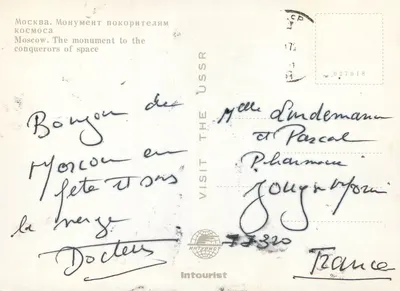 Москва. Монумент покорителям
космоса
Moscow. The monument to the
conquerors of space
Bonjour de
Moscou en
fête et sous
la neige
Docteur
VISIT THE USSR
Intourist
Melle Lindemann
et Pascal
Pharmacie
Jouy s/Morin
77320
France